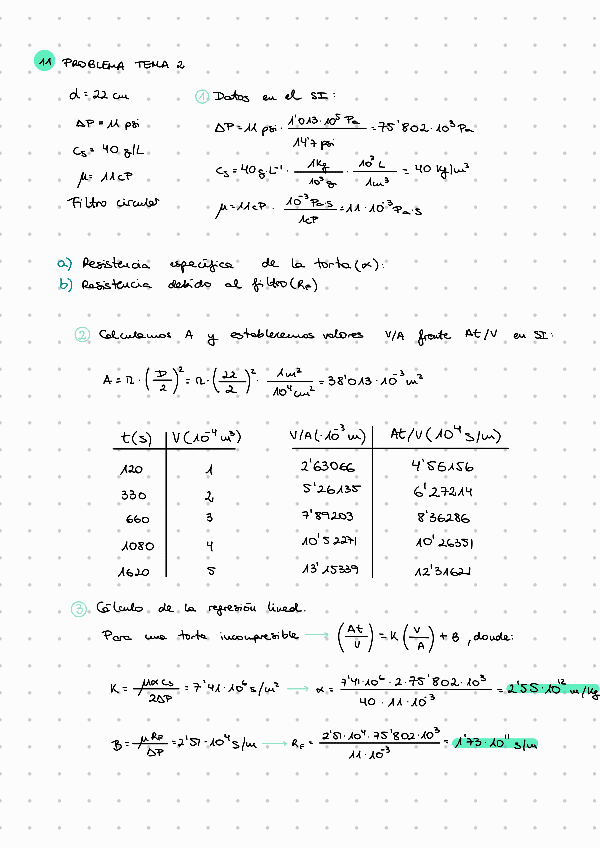 11 PROBLEMA TEMA 2
d = 22 cm
ΔP = 11 psi
Cs = 40 g/L
μ = 11 cP
Filtro circular
① Datos en el SI:
ΔP = 11 psi · 1'013·10⁵ Pa / 14'7 psi = 75'802·10³ Pa
Cs = 40 g·L⁻¹ · 1Kg / 10³ g · 10³ L / 1m³ = 40 Kg/m³
μ = 11cP · 10⁻³ Pa·s / 1cP = 11·10⁻³ Pa·s
a) Resistencia específica de la torta (α):
b) Resistencia debido al filtro (RF)
② Calculamos A y establecemos valores V/A frente At/V en SI:
A = π · (D/2)² = π · (22/2)² · 1m² / 10⁴ cm² = 38'013·10⁻³ m²
t(s) V(10⁻⁴ m³) V/A(·10⁻³ m) At/V(10⁴ s/m)
120 1 2'63066 4'56156
330 2 5'26135 6'27214
660 3 7'89203 8'36286
1080 4 10'52271 10'26351
1620 5 13'15339 12'31621
③ Cálculo de la regresión lineal.
Para una torta incompresible → (At/V) = K (V/A) + B, donde:
K = μαCs / 2ΔP = 7'41·10⁶ s/m² → α = 7'41·10⁶ · 2 · 75'802·10³ / 40 · 11·10⁻³ = 2'55·10¹² m/Kg
B = μRF / ΔP = 2'51·10⁴ s/m → RF = 2'51·10⁴ · 75'802·10³ / 11·10⁻³ = 1'73·10¹¹ s/m